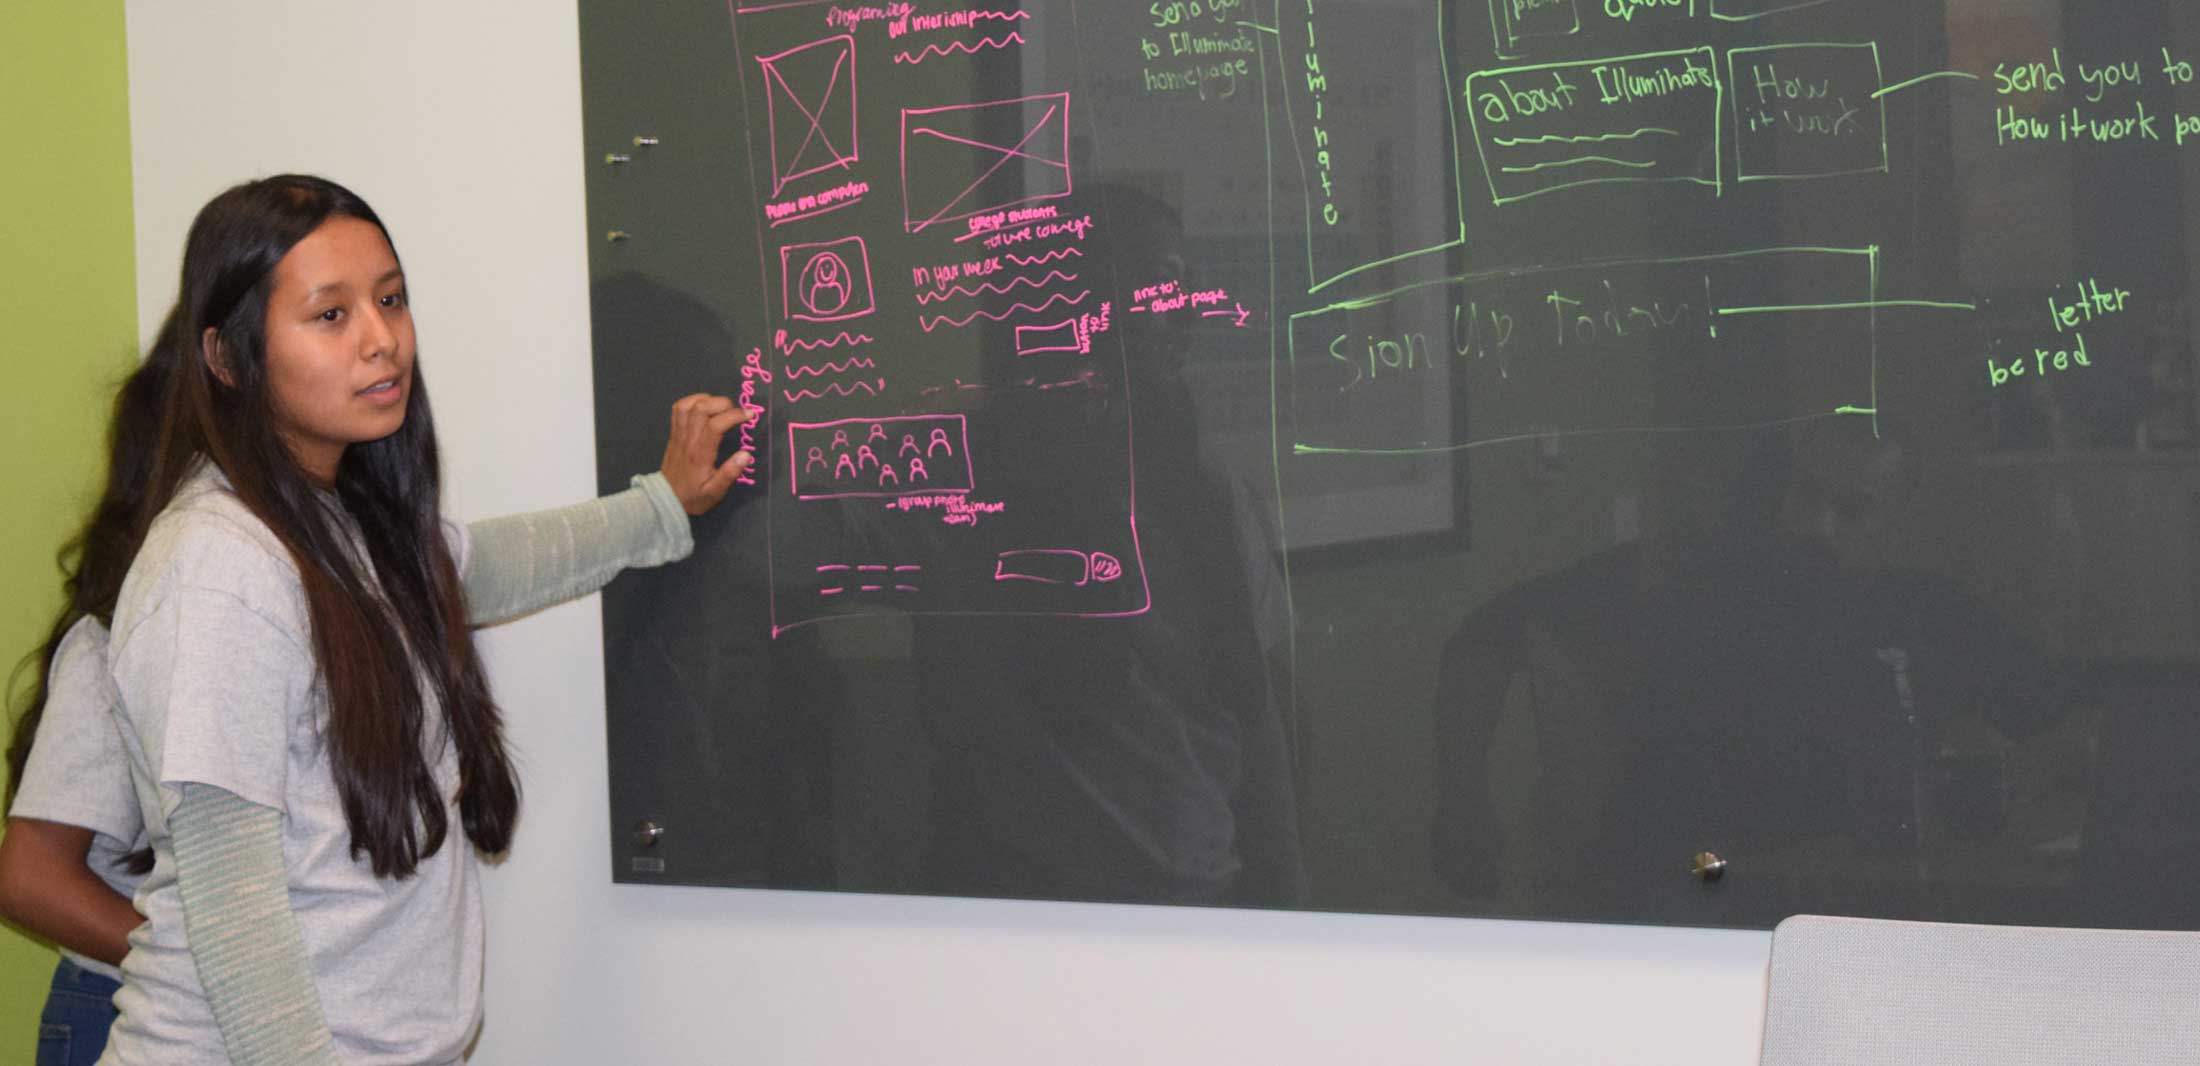 programing
our intership
people on computers
college students
future college
In your week
button
to
link
link to:
- about page
homepage
- (group photo
illuminate
team)
send you
to Illuminate
homepage
luminate
about Illuminate
How
it work
send you to
How it work pa
Sign Up Today!
letter
be red